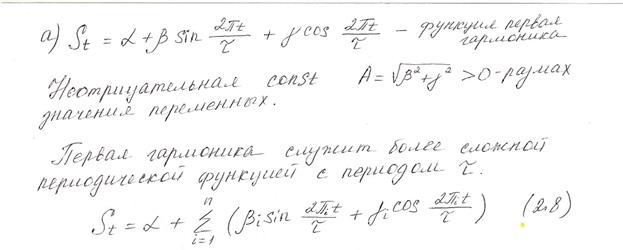 а) St = α + β sin 2πt/τ + γ cos 2πt/τ – функция первая гармоника
Неотрицательная const A = √β²+γ² > 0 - размах
значения переменных.
Первая гармоника служит более сложной
периодической функцией с периодом τ.
St = α + n∑i=1 (βi sin 2πit/τ + γi cos 2πit/τ) (2.8)